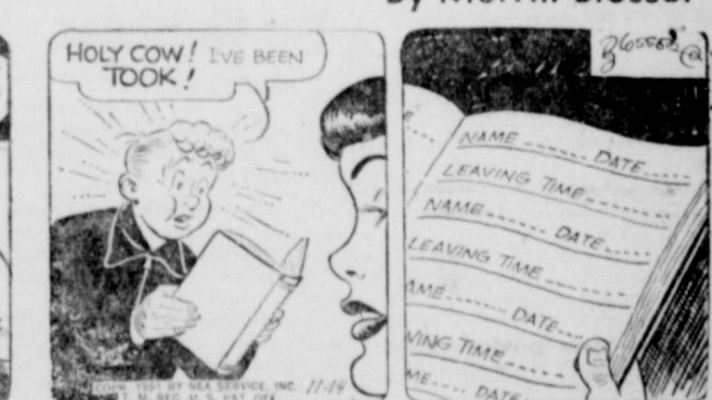 By Merrill Blosser
HOLY COW! I'VE BEEN
TOOK!
COPR. 1951 BY NEA SERVICE, INC.
T. M. REG. U. S. PAT. OFF.
11-14
Blosser
NAME ------ DATE----
LEAVING TIME -------
NAME ------ DATE----
LEAVING TIME -------
AME------ DATE----
VING TIME-----
ME---- DATE